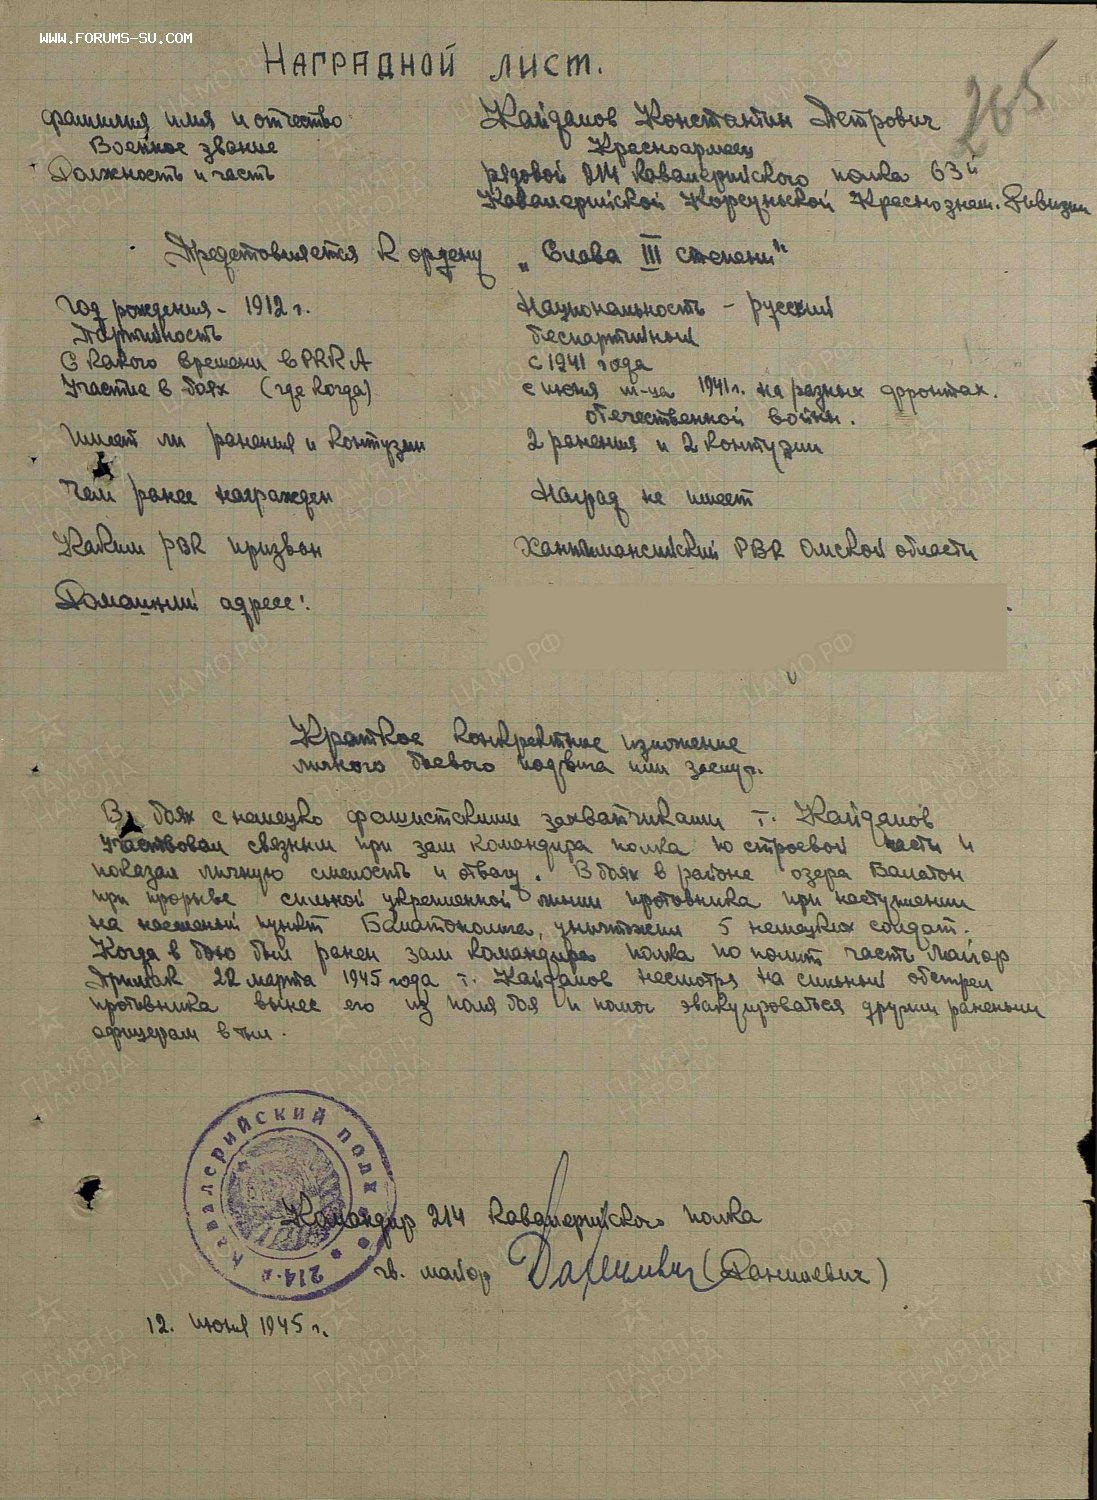 WWW.FORUMS-SU.COM
Наградной лист.
265
Фамилия имя и отчество Кайдалов Константин Петрович
Военное звание Красноармеец
Должность и часть рядовой 214 кавалерийского полка 63й
Кавалерийской Корсуньской Краснознам. дивизии
Представляется к ордену „Слава III степени"
Год рождения - 1912 г. Национальность - русский
Партийность беспартийный
С какого времени в РККА с 1941 года
Участие в боях (где когда) с июня м-ца 1941 г. на разных фронтах.
отечественной войны.
Имеет ли ранения и контузии 2 ранения и 2 контузии
Чем ранее награжден Наград не имеет
Каким РВК призван Хантымансийский РВК Омской области
Домашний адрес:
Краткое конкретное изложение
личного боевого подвига или заслуг.
В боях с немецко фашистскими захватчиками т. Кайдалов
участвовал связным при зам командира полка по строевой части и
показал личную смелость и отвагу. В боях в районе озера Балатон
при прорыве сильной укрепленной линии противника при наступлении
на населеный пункт уничтожил 5 немецких солдат.
Когда в бою был ранен зам командира полка по полит часть майор
22 марта 1945 года т. Кайдалов несмотря на сильный обстрел
противника вынес его из поля боя и помог эвакуироваться другим раненым
офицерам в тыл.
214-й кавалерийский полк
Командир 214 кавалерийского полка
гв. майор (Данилевич)
12. июня 1945 г.
ЦАМО.РФ
ПАМЯТЬ НАРОДА